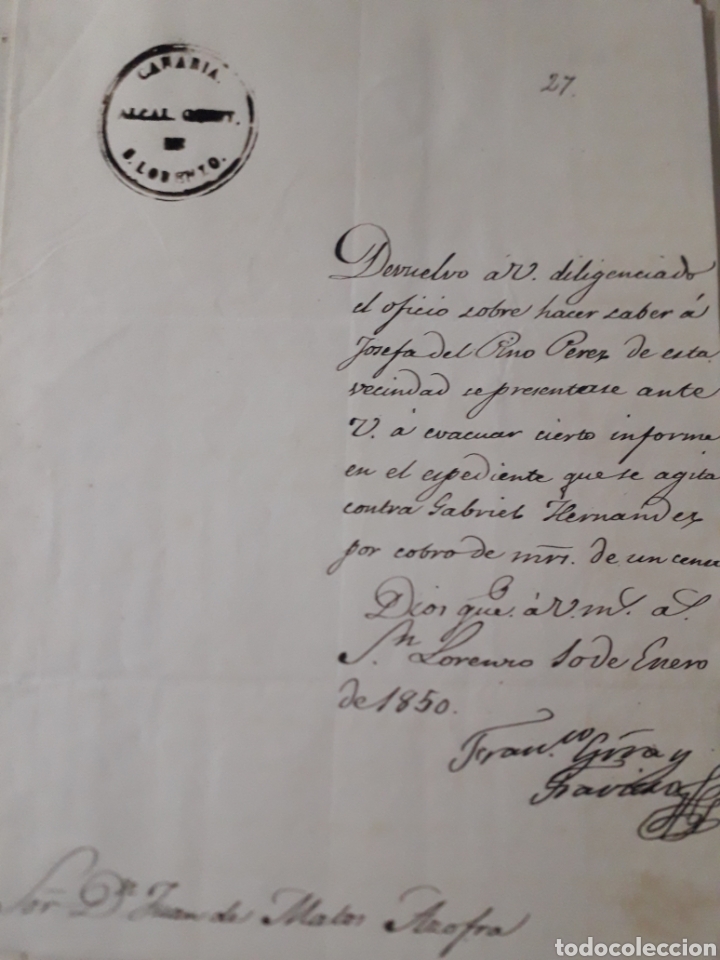 CANARIA.
ALCAL. CONST.
DE
S. LORENZO.
27.
Devuelvo á V. diligenciado
el oficio sobre hacer saber á
Josefa del Pino Perez de esta
vecindad se presentase ante
V. á evacuar cierto informe
en el espediente que se agita
contra Gabriel Hernandez
por cobro de mrs. de un censo
Dios gue. á V. ms. as.
Sn. Lorenzo 10 de Enero
de 1850.
Fran.co
y
Sor. Dn. Juan de Matos Azofra
todocoleccion.net